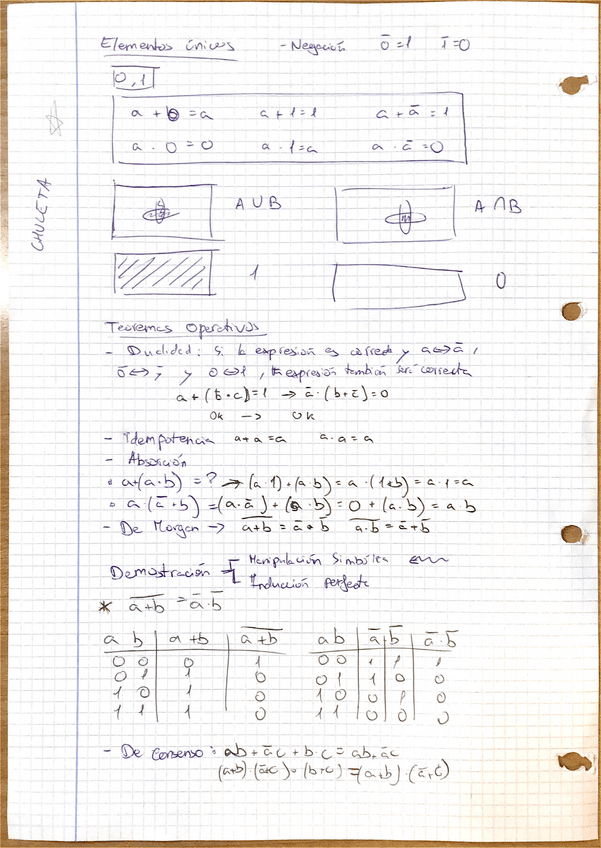 Elementos únicos - Negación 0̅ = 1 1̅ = 0
0,1
CHULETA
a + 0 = a a + 1 = 1 a + a̅ = 1
a · 0 = 0 a · 1 = a a · a̅ = 0
A ∪ B A ∩ B
1 0
Teoremas Operativos
- Dualidad: Si la expresión es correcta y a ↔ a̅,
y 0 ↔ 1, la expresión también será correcta
a + (b · c) = 1 → a̅ · (b + c̅) = 0
Ok → OK
- Idempotencia a + a = a a · a = a
- Absorción
• a + (a · b) = ? → (a · 1) + (a · b) = a · (1 + b) = a · 1 = a
• a · (a̅ + b) = (a · a̅) + (a · b) = 0 + (a · b) = a b
- De Morgan → a̅+̅b̅ = a̅ · b̅ a̅·̅b̅ = a̅ + b̅
Demostración - Manipulación Simbólica
- Inducción perfecta
* a̅+̅b̅ = a̅ · b̅
a b a + b a̅+̅b̅ a b a̅ b̅ a̅ · b̅
0 0 0 1 0 0 1 1 1
0 1 1 0 0 1 1 0 0
1 0 1 0 1 0 0 1 0
1 1 1 0 1 1 0 0 0
- De Consenso: ab + a̅c + b·c = ab + a̅c
(a+b) · (a̅+c) · (b+c) = (a+b) · (a̅+c)